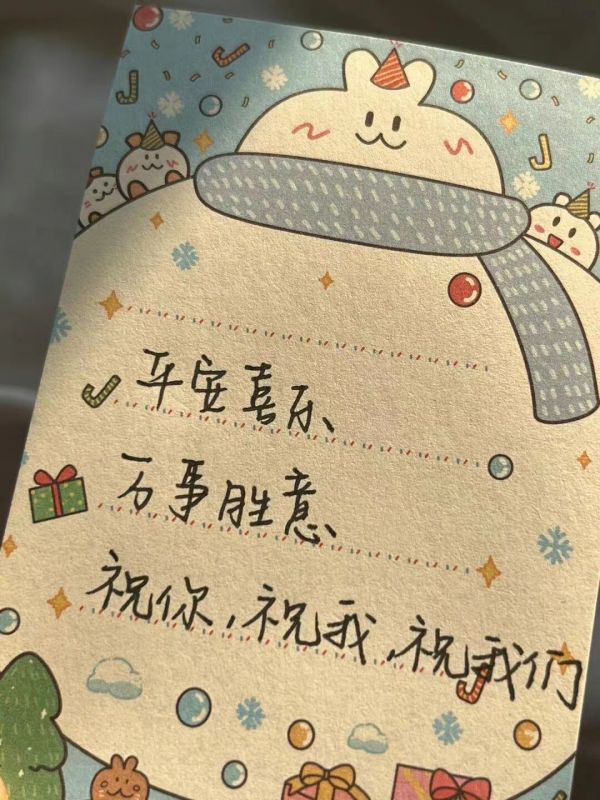 平安喜乐
万事胜意
祝你，祝我，祝我们